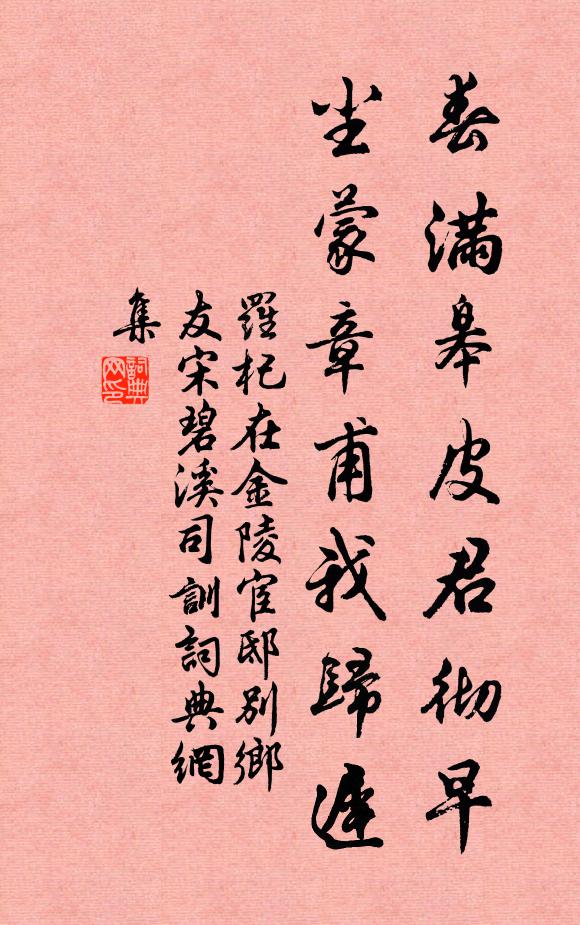 春滿皋皮君彻早
尘蒙章甫我歸遲
羅杞在金陵宦邸别鄉
友宋碧溪司訓詞典網
集
詞典
网印